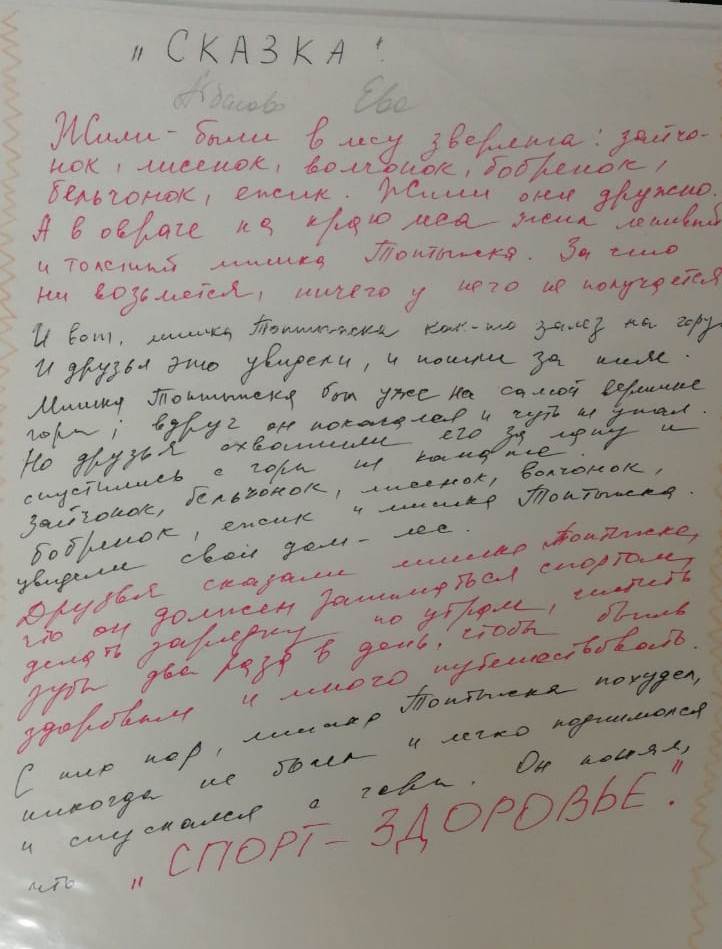 „СКАЗКА"
Ева
Жили-были в лесу зверята: зайчо-
нок, лисенок, волчонок, бобренок,
бельчонок, ежик. Жили они дружно.
А в овраге на краю леса жил ленивый
и толстый мишка Топтыжка. За что
ни возьмется, ничего у него не получается
И вот, мишка Топтыжка как-то залез на гору
И друзья это увидели, и пошли за ним.
Мишка Топтыжка был уже на самой вершине
горы, вдруг он покачался и чуть не упал.
Но друзья схватили его за лапу и
спустились с горы на канате.
Зайчонок, бельчонок, лисенок, волчонок,
бобренок, ежик и мишка Топтыжка.
увидели свой дом-лес.
Друзья сказали мишке Топтыжке,
что он должен заниматься спортом,
делать зарядку по утрам, чистить
зубы два раза в день, чтобы быть
здоровым и много путешествовать.
С тех пор, мишка Топтыжка похудел,
никогда не болел и легко поднимался
и спускался с горы. Он понял,
что „СПОРТ-ЗДОРОВЬЕ".